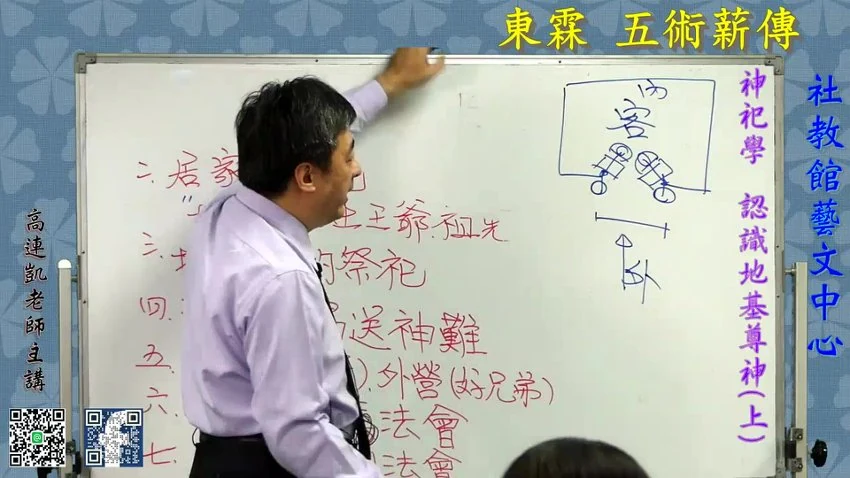 東霖 五術薪傳
社教館藝文中心
神祀學 認識地基尊神(上)
高連凱老師主講
二.居家
王爺.祖先
三.
的祭祀
四.
送神難
五.
外營(好兄弟)
六.
法會
七.
法會
內
客
外